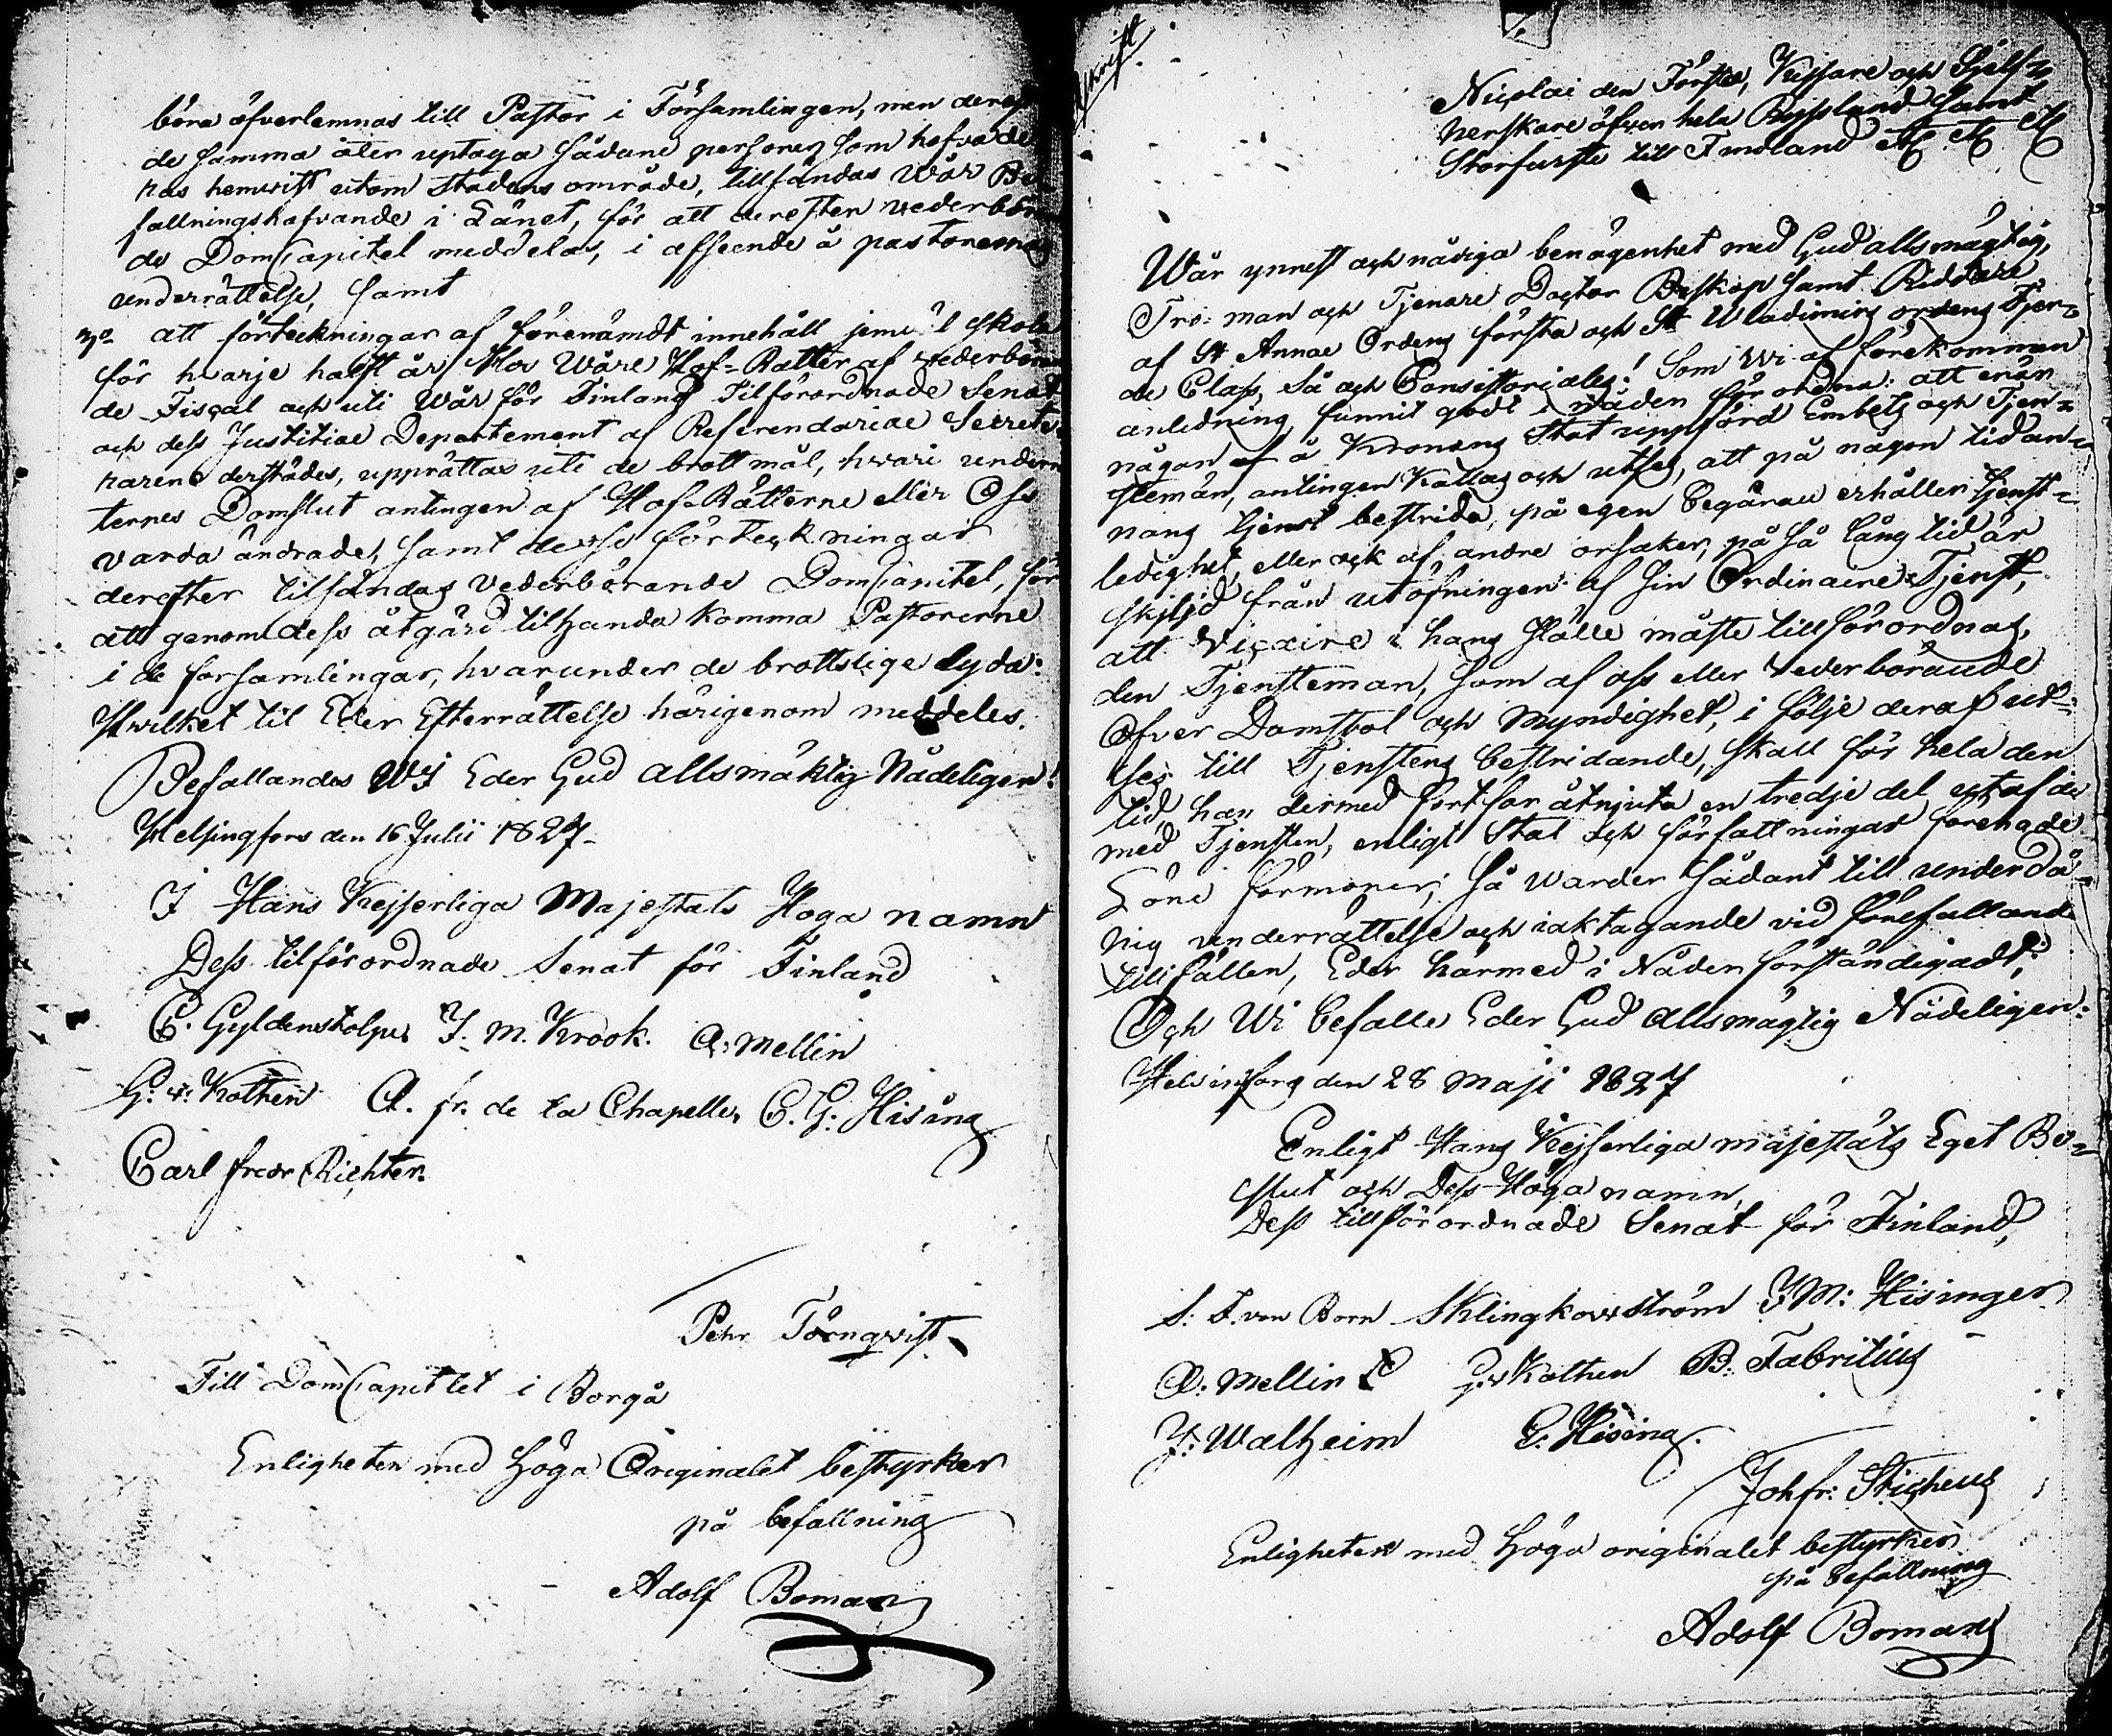 böra öfverlemnas till Pastor i Församlingen, men deröf
de samma åter uptaga sådane personer som hafva de
ras hemvist utom Stadens område, tillsändas Wår Be
fallningshafvande i Länet, för att derefter vederböran
de DomCapitel meddelas, i afseende å pastorernas
underrättelse, samt
3o att förteckningar af förenämdt innehåll jemväl skola
för hvarje halft år, hos Wåre Hof=Rätter af vederböran
de Fiscal och uti Wår för Finland Tilförordnade Senat
och dess Justitiae Departement af Referendariae Secrete
rarene derstädes, upprättas uti de brottmål, hvari underrät
ternes Domslut antingen af Hof-Rätterne eller Oss
varda ändrade, samt desse förteckningar
derefter tilsändas Vederbörande DomCapitel, för
att genom dess åtgärd tilhanda komma Pastorerne
i de församlingar, hvarunder de brottslige lyda:
Hvilket til Eder Efterrättelse härigenom meddeles.
Befallandes WJ Eder Gud allsmäktig Nådeligen!
Helsingfors den 16 Julii 1827-
J Hans Kejserliga Majestäts Höga namn
Dess tilförordnade Senat för Finland
C. Gyldenstolpe J. M. Krook. A: Mellin
G. v: Kothen A. fr. de la Chapelle, C. G: Hising
Carl fredr Richter.
Pehr Törnqvist
Till DomCapitlet i Borgå
Enligheten med höga Originalet bestyrker
på befallning
Adolf Boman
Afskrift.
Nicolai den Förste, Kejsare och Sjelf=
herskare öfver hela Ryssland samt
Storfurste till Finland etc etc etc
Wår ynnest och nådiga benägenhet med Gud allsmägtig,
Tro-man och Tjenare Doctor Biskop samt Riddare
af St Annae Ordens första och St Wladimirs ordens Fjer=
de Class, Så och Consistoriales! Som Wi af förekommen
anledning funnit godt i nåden förordna: att enär
någon af å Kronans Stat uppförd Embets och Tjen=
steman, antingen kallas och utses, att på någon tid an=
nans tjenst bestrida, på egen begäran erhåller tjenst=
ledighet, eller ock af andre orsaker, på så lång tid är
skiljd från utöfningen af sin Ordinaire Tjenst,
att Vicaire i hans ställe måste tillförordnas,
den Tjensteman, som af oss eller vederbörande
Öfver Domstol och Myndighet, i följe deraf ut=
ses till Tjenstens bestridande, skall för hela den
tid, han dermed fortfar åtnjuta en tredje del utaf de
med Tjensten, enligt Stat och författningar förenade
Löne förmoner; Så warder Sådant till underdå=
nig underrättelse och iakttagande vid förefallande
tillfällen, Eder härmed i Nåder förständigadt;
Och Wi befalle Eder Gud allsmägtig Nådeligen:
Helsingfors den 28 Maji 1827
Enligt Hans Kejserliga majestäts Eget Be=
slut och Dess Höga namn,
Dess tillförordnade Senat för Finland,
S: F. von Born S Klingkowström J M: Hisinger
A: Mellin G: v Kothen B: Fabritius
J: Walheim C. Hising.
Joh fr: Stichæus
Enligheten med höga originalet bestyrker
på befallning
Adolf Boman